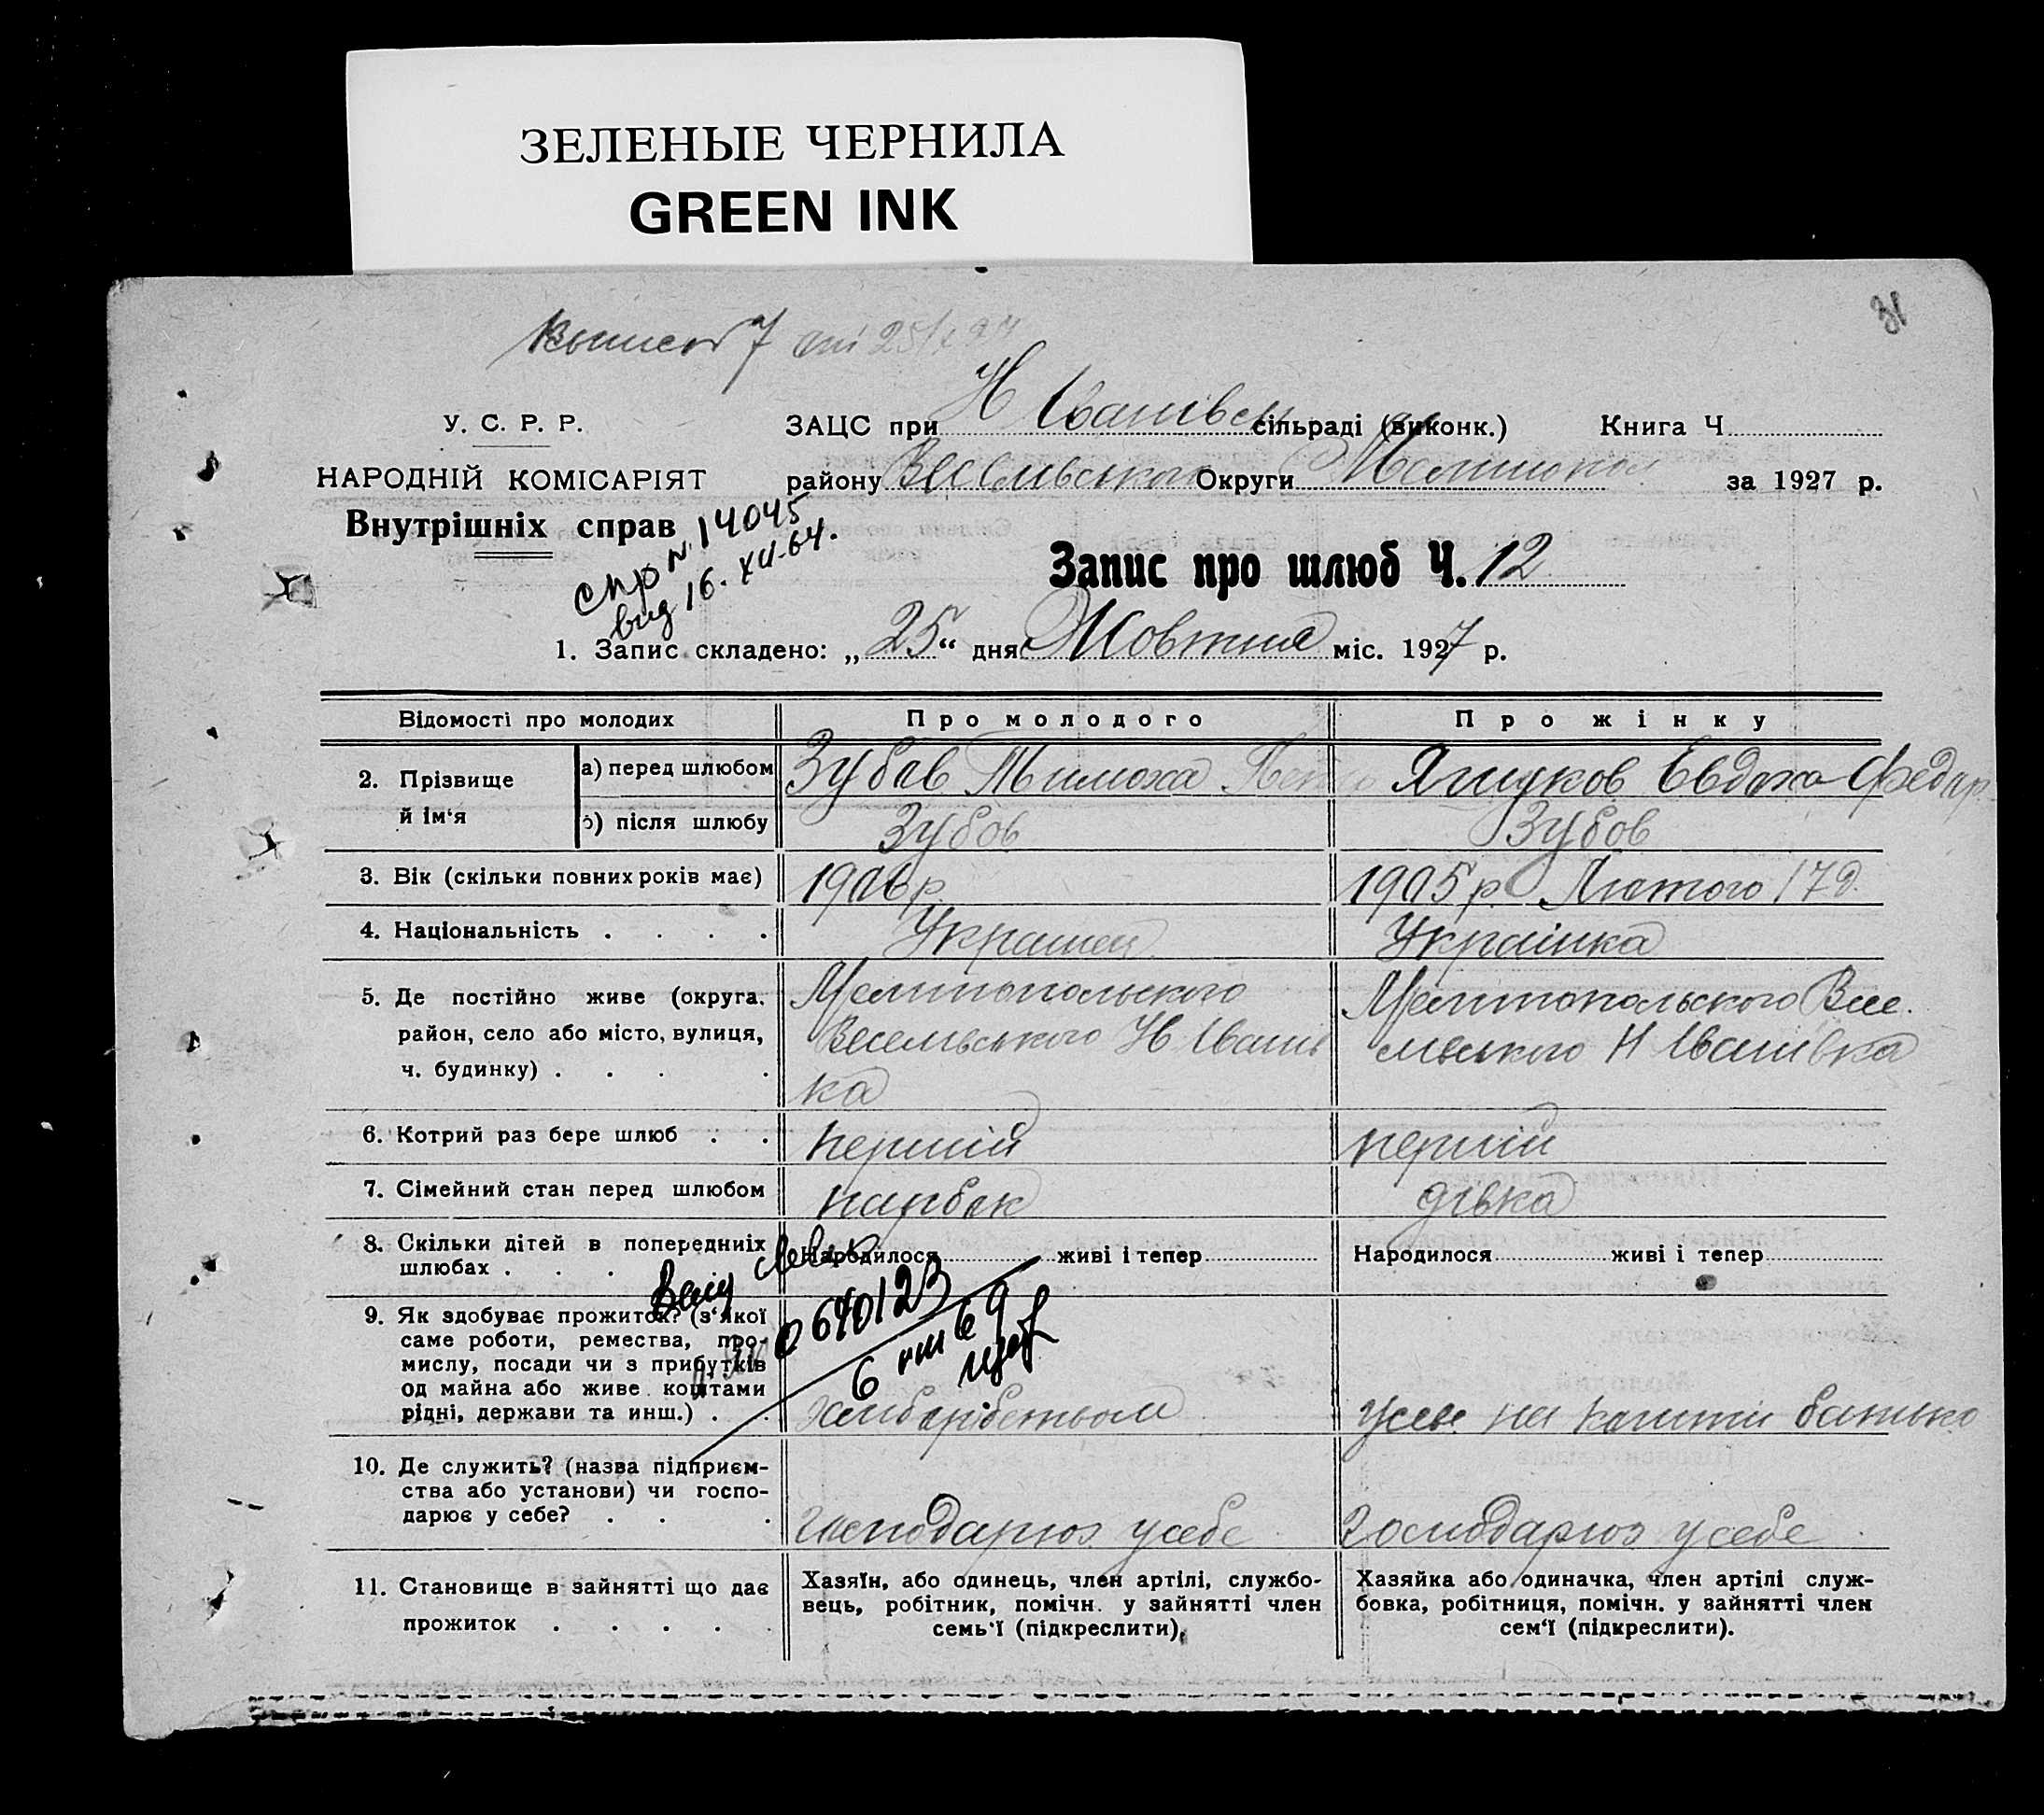 ЗЕЛЕНЫЕ ЧЕРНИЛА
GREEN INK
31
У. С. Р. Р.
НАРОДНІЙ КОМІСАРІЯТ
Внутрішніх справ
спр N 14045
вид 16. XII-64.
ЗАЦС при Н Іванівськ сільраді (виконк.) Книга Ч
району Веселівського Округи Мелитопол за 1927 р.
Запис про шлюб Ч. 12
1. Запис складено: „25“ дня Жовтня міс. 1927 р.
Відомості про молодих Про молодого Про жінку
2. Прізвище й ім‘я
а) перед шлюбом Зубов Тимоха Яшуков Евдоха Федор
б) після шлюбу Зубов Зубов
3. Вік (скільки повних років має) 1906 р 1905 р Лютого 17 д.
4. Національність . . . . Украинец Украінка
5. Де постійно живе (округа, район, село або місто, вулиця, ч. будинку) . . . .
Мелитопольского
Веселівського Н Іванів
ка
Мелитопольского Весе.
лівського Н Іванівка
6. Котрий раз бере шлюб . . перший перший
7. Сімейний стан перед шлюбом парбок дівка
8. Скільки дітей в попередниіх шлюбах . . .
Народилося живі і тепер Народилося живі і тепер
9. Як здобуває прожиток? (з‘якої
саме роботи, ремества, про-
мислу, посади чи з прибутків
од майна або живе коштами
рідні, держави та инш.) . .
640123
6 69
хлиборобством на кошти батько
10. Де служить? (назва підприєм-
ства або установи) чи госпо-
дарює у себе? . . .
господарюэ усебе господарюэ у себе
11. Становище в зайнятті що дає
прожиток . . . .
Хазяїн, або одинець, член артілі, службо-
вець, робітник, помічн. у зайнятті член
семь‘ї (підкреслити),
Хазяйка або одиначка, член артілі служ-
бовка, робітниця, помічн. у зайнятті член
сем‘ї (підкреслити).